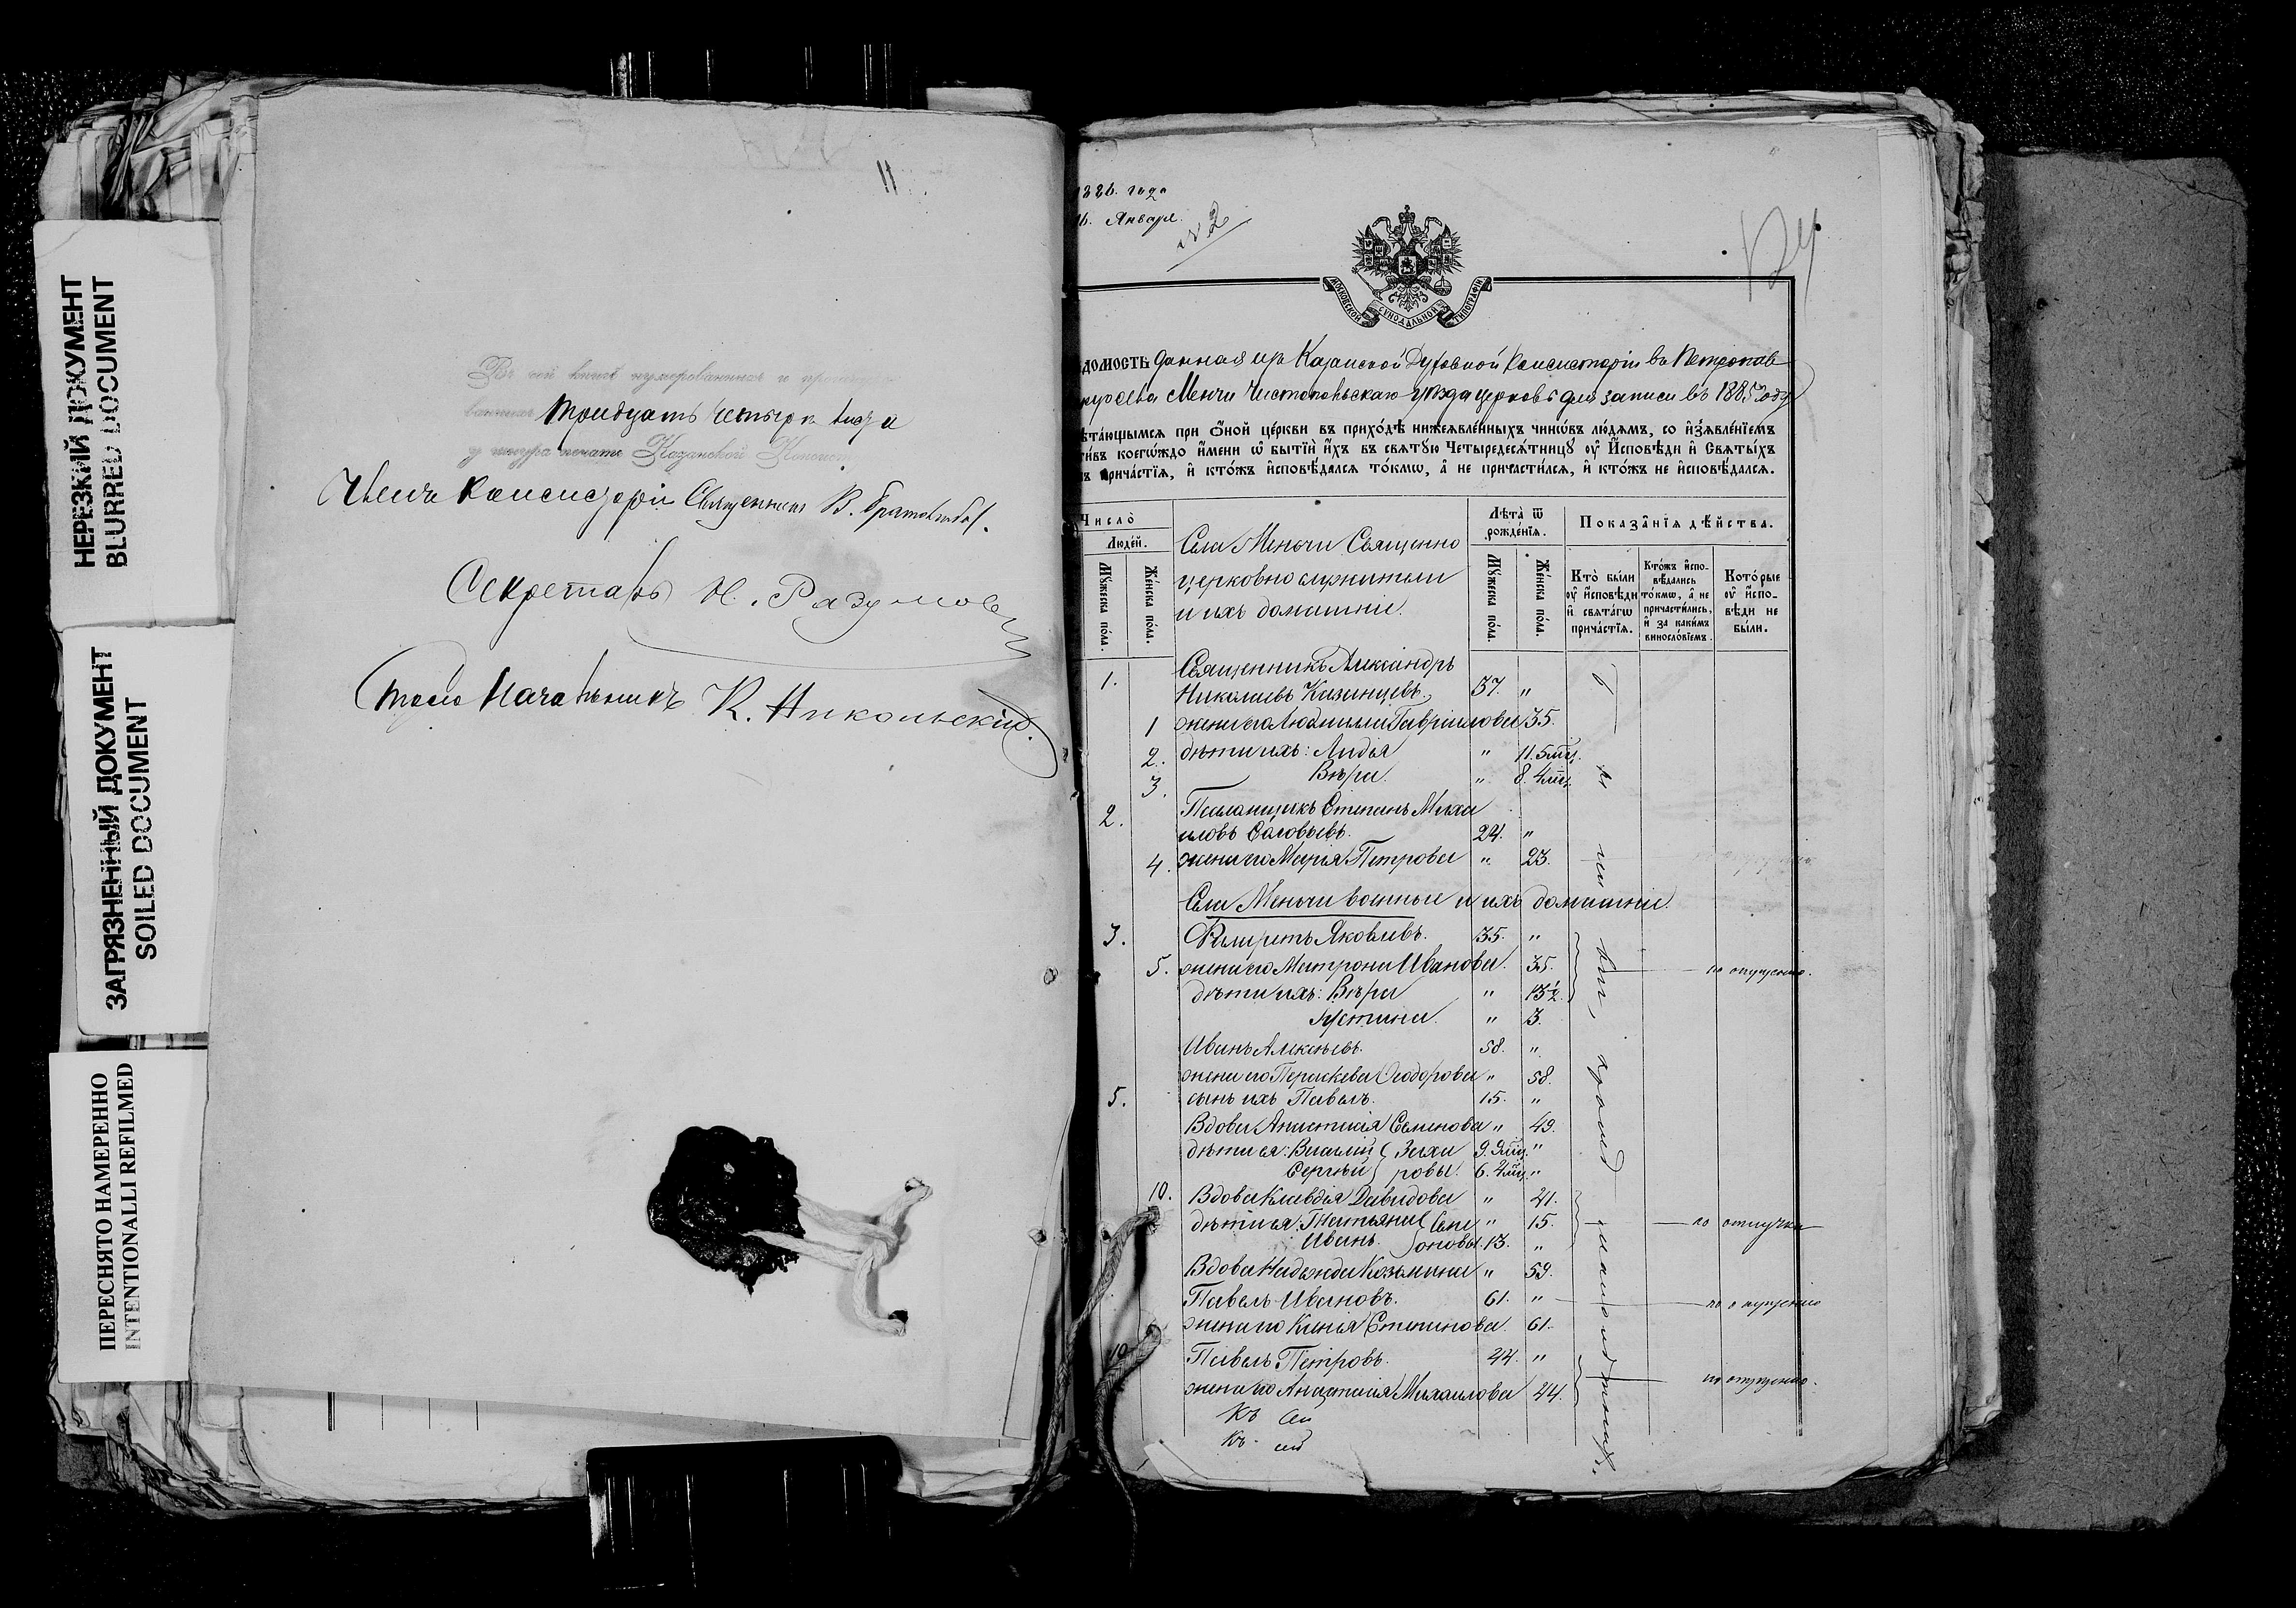 НЕРЕЗКИЙ ДОКУМЕНТ
BLURRED DOCUMENT
ЗАГРЯЗНЕННЫЙ ДОКУМЕНТ
SOILED DOCUMENT
ПЕРЕСНЯТО НАМЕРЕННО
INTENTIONALLI REFILMED
11
Въ сей книгѣ нумерованныхъ и
тридцать четыре листа
у шнура печать Казанской
Членъ Консисторіи Священникъ В.
Секретарь Н. Разумов
Столоначальникъ К. Никольскій.
1886. года
Января.
№ 2
МОСКОВСКОЙ СѴНОДАЛЬНОЙ ТИПОГРАФІИ
ДОМОСТЬ данная изъ Казанской Духовной Консисторіи въ Петропав
села Менчи Чистопольскаго уѣзда церковь для записи въ 1885 году
ѣта́ющымся при ѻ҆́ной це́ркви въ прихо́дѣ нижеѧвле́нныхъ чинѡ́въ лю́дямъ, со и҆з̾явле́нїемъ
ти́въ коегѡ́ждо и҆́мени ѡ҆ бытїѝ и҆́хъ въ свѧтꙋ́ю Четыредесѧ́тницꙋ ᲂу҆ И҆сповѣди и҆ Свѧты́хъ
ъ причастїѧ, и҆ кто́жъ и҆сповѣ́дался то́кмѡ, а҆ не причасти́лся, и҆ кто́жъ не и҆сповѣ́дался.
Число̀
Люде́й.
Мꙋ́жеска по́ла.
Же́нска по́ла.
Села Менчи Священно
церковно служители
и ихъ домашніе.
Лѣта̀ ѿ
рожде́нїѧ.
Мꙋ́жеска по́ла.
Же́нска по́ла.
Показа̑нїѧ дѣ́йства.
Кто̀ бы́ли
ᲂу҆ и҆сповѣ́ди
и҆ свѧта́гѡ
прича́стїѧ.
Кто́жъ и҆спо-
вѣ́дались
то́кмѡ, а҆ не
причасти́лись,
и҆ за каки́мъ
виносло́вїемъ.
Кото́рые
ᲂу҆ и҆спо-
вѣ́ди не
бы́ли.
1. Священникъ Александръ
Николаевъ Казанцевъ. 37. "
1 жена его Людмила Гавріилова 35.
2. дѣти ихъ: Лидія " 11. 5 мѣс.
3. Вѣра. " 8. 4 мѣс.
2. Псаломщикъ Степанъ Миха
иловъ Соловьевъ. 24. "
4. жена его Марія Петрова " 23.
Села Менчи военные и ихъ домашніе.
3. Филаретъ Яковлевъ. 35. "
5. жена его Матрона Иванова. 35. по опущенію.
дѣти ихъ: Вѣра " 13½.
Устина. " 3.
Иванъ Алексѣевъ. 58. "
жена его Параскева Ѳеодорова " 58.
5. сынъ ихъ Павелъ. 15. "
Вдова Анастасія Семенова " 49.
дѣти ея: Василій } Заха 9. 9 мѣс. "
Сергѣй } ровы. 6. 4 мѣс. "
10. Вдова Клавдія Давидова " 41.
дѣти ея: Татьяна } Сим " 15. по отлучкѣ
Иванъ. } оновы. 13. "
Вдова Надежда Козьмина " 59.
Павелъ Ивановъ. 61. " по опущенію
жена его Ксенія Степанова. 61.
10 Павелъ Петровъ. 44. "
жена его Анастасія Михаилова 44. по опущенію.